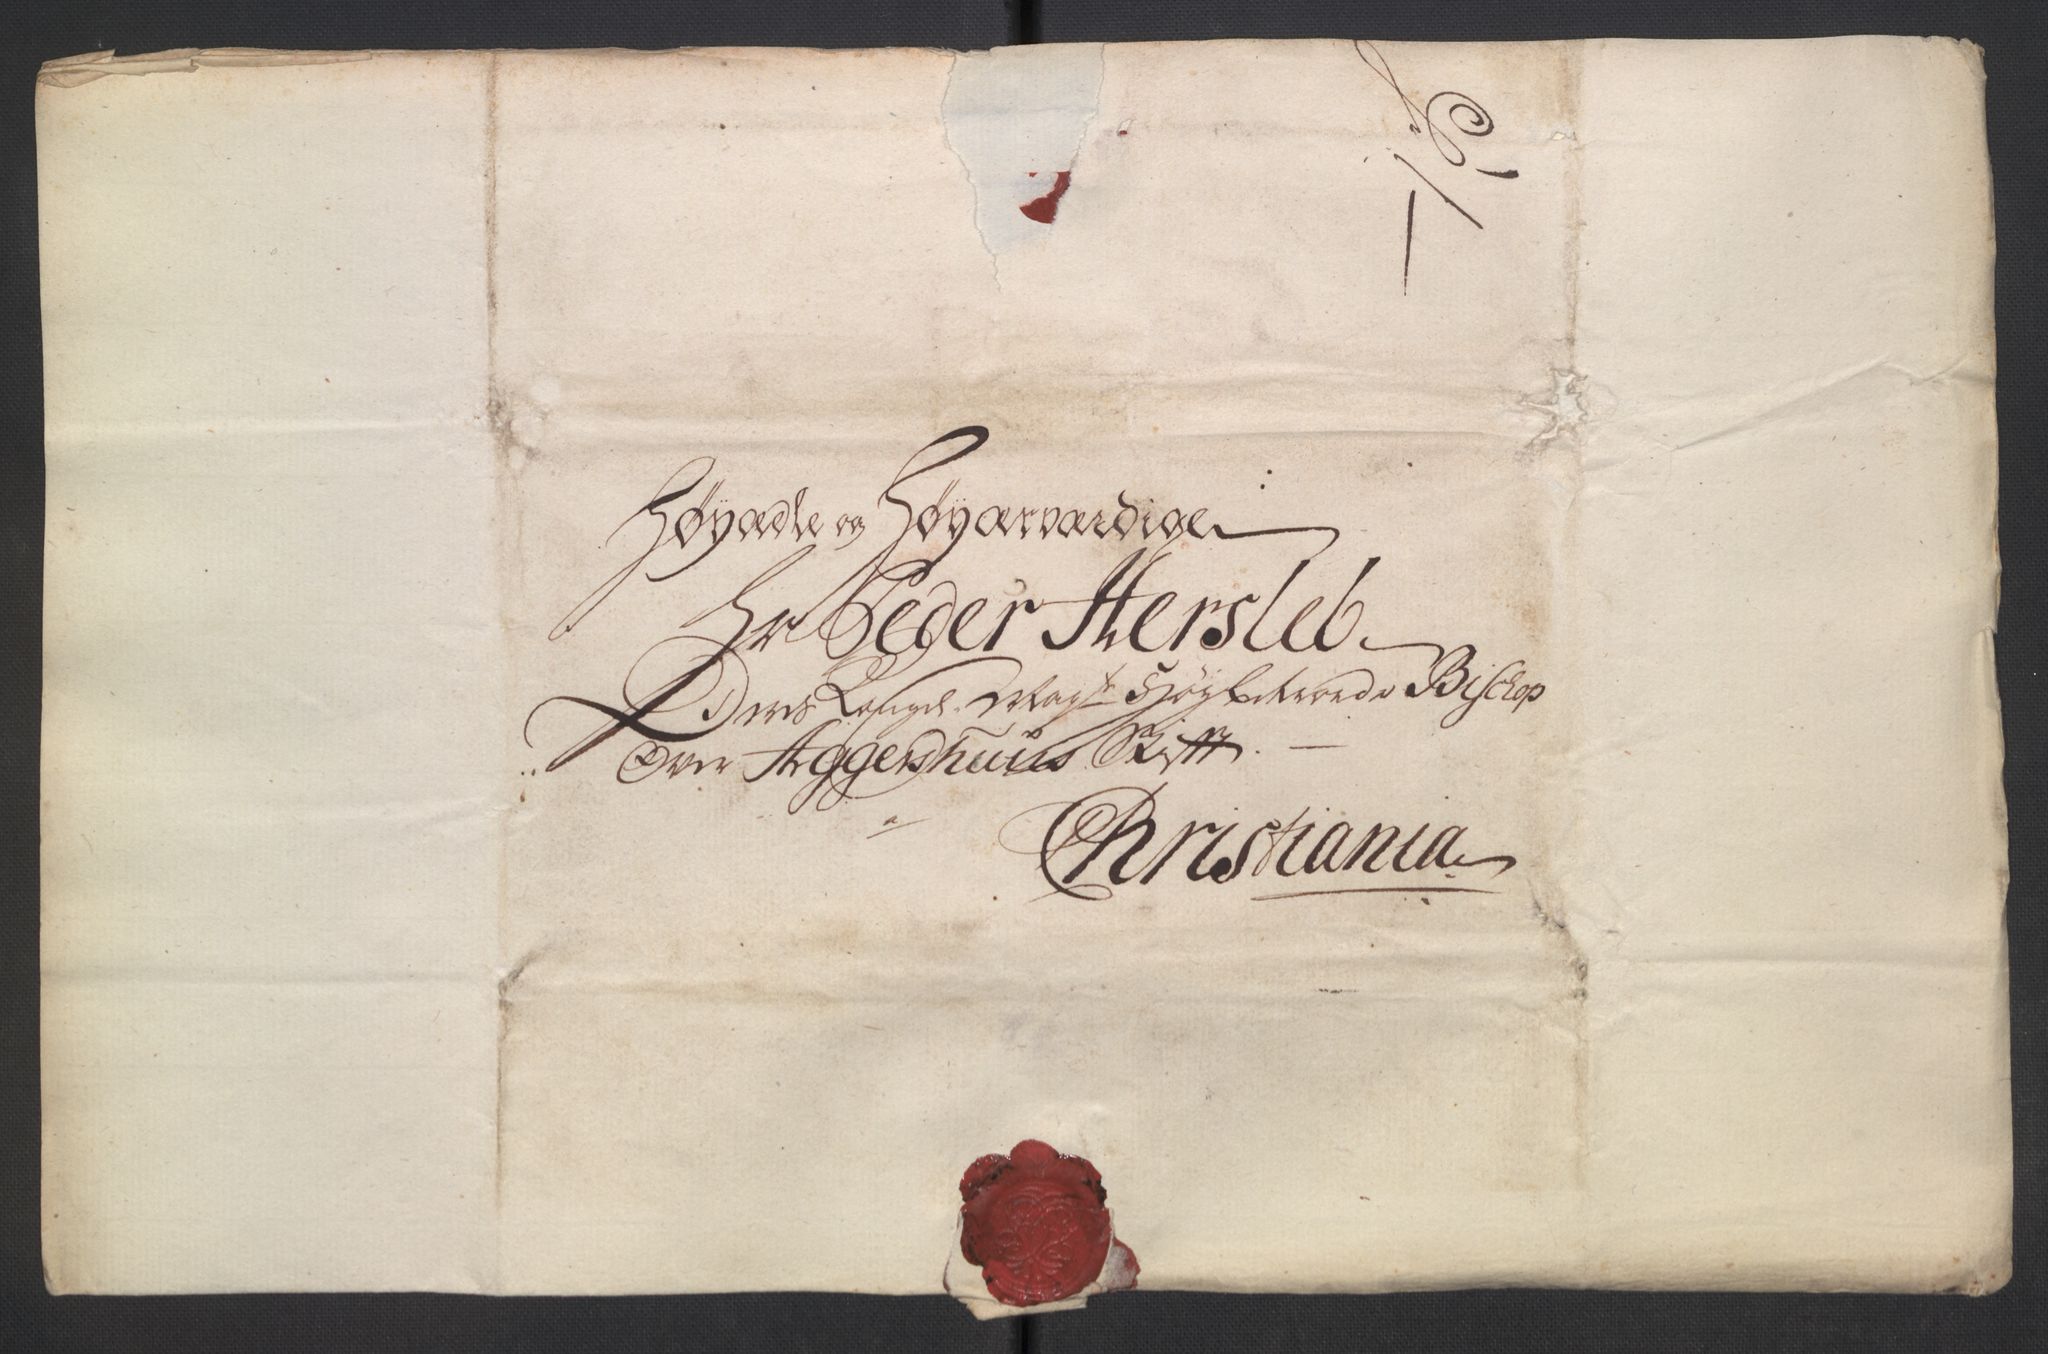 Høyædle og Høyærværdige
Hr Peder Hersleb
Deres Kongel. Mayts Høybetroede Bischop
Over Aggershuus Stifft.
a
Christiania